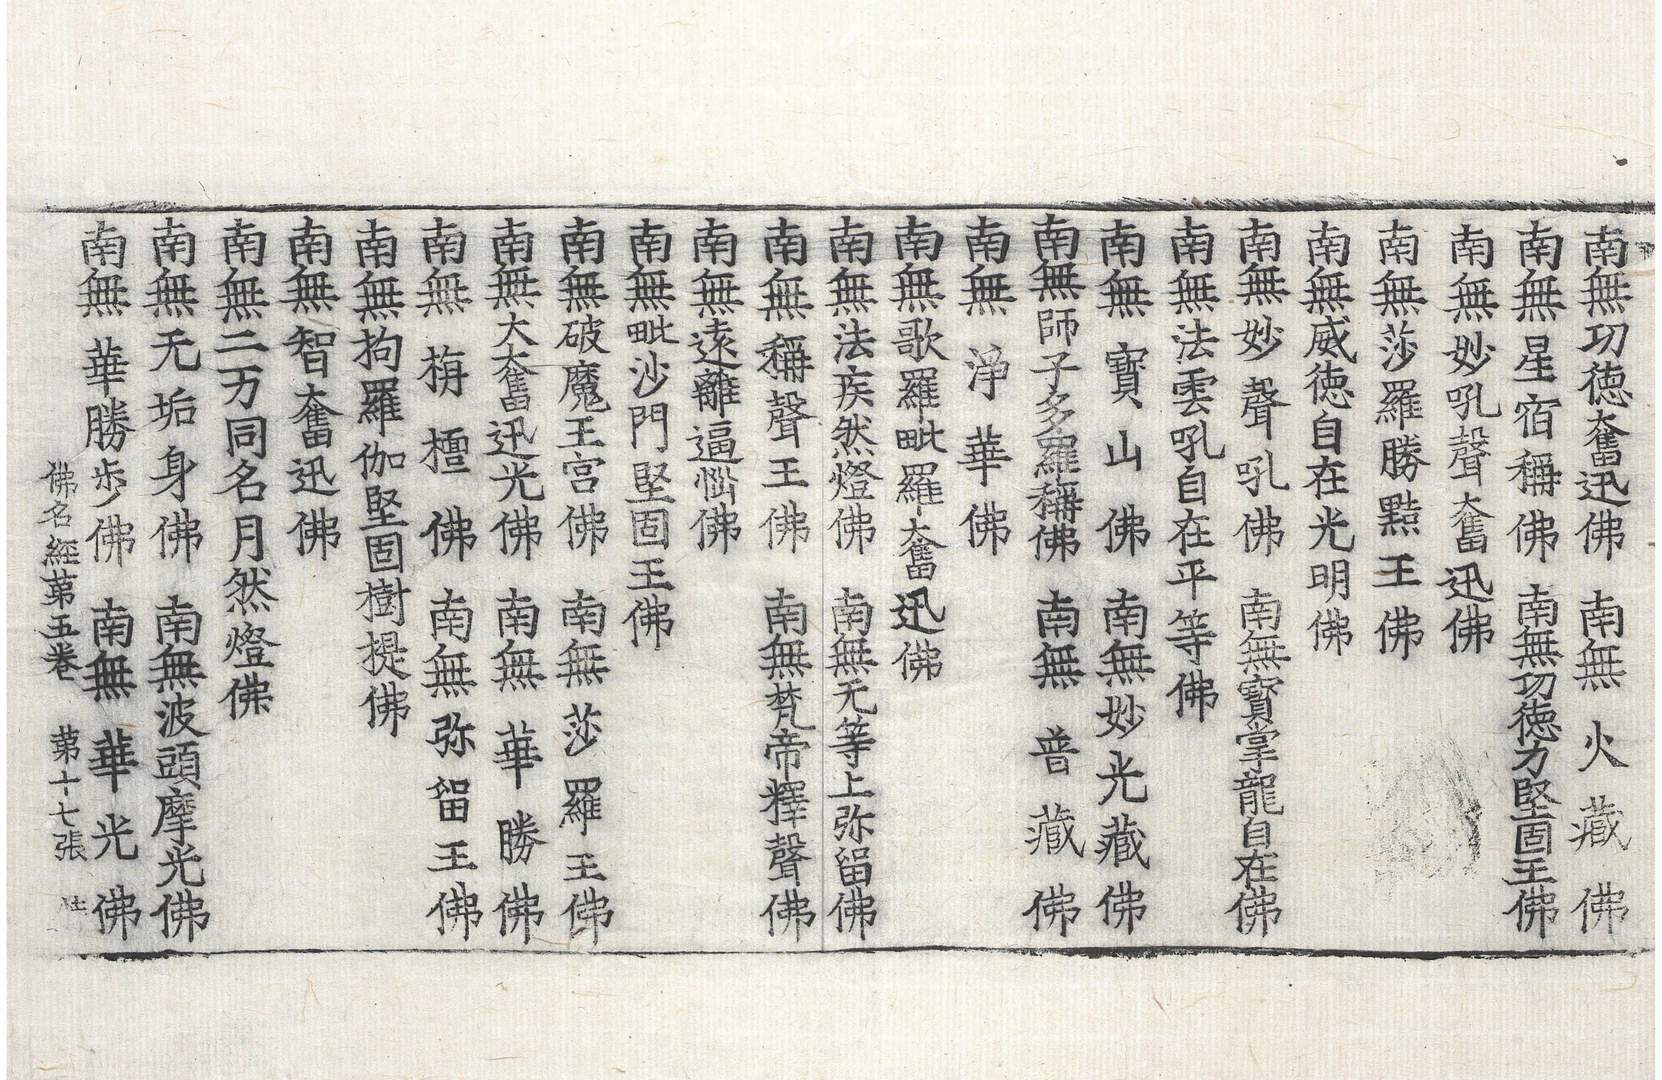 南無功徳奮迅佛　南無火藏佛
南無星宿稱佛　南無功徳力堅固王佛
南無妙吼聲奮迅佛
南無莎羅勝㸃王佛
南無威徳自在光明佛
南無妙聲吼佛　南無寳掌龍自在佛
南無法雲吼自在平等佛
南無寳山佛　南無妙光藏佛
南無師子多羅稱佛　南無普藏佛
南無淨華佛
南無歌羅毗羅奮迅佛
南無法疾然燈佛　南無无等上弥留佛
南無稱聲王佛　南無梵帝釋聲佛
南無遠離逼惱佛
南無毗沙門堅固王佛
南無破魔王宫佛　南無莎羅王佛
南無大奮迅光佛　南無華勝佛
南無栴檀佛　南無弥留王佛
南無拘羅伽堅固樹提佛
南無智奮迅佛
南無二万同名月然燈佛
南無无垢身佛　南無波頭摩光佛
南無華勝步佛　南無華光佛
佛名經第五卷　第十七張